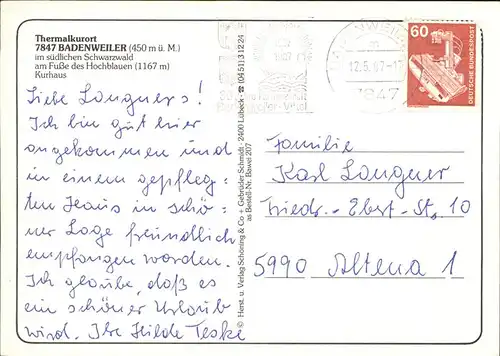 Thermalkurort
7847 BADENWEILER (450 m ü. M.)
im südlichen Schwarzwald
am Fuße des Hochblauen (1167 m)
Kurhaus
Liebe Longners!
Ich bin gut hier
angekommen und
in einem gepfleg-
ten Haus in schö-
ner Lage freundlich
empfangen worden.
Ich glaube, daß es
ein schöner Urlaub
wird. Ihre Hilde Teske
© Herst. u. Verlag Schöning & Co + Gebrüder Schmidt · 2400 Lübeck · ☎ (0451) 3 12 24
as Bestell-Nr. Bawei 207
7847
60
DEUTSCHE BUNDESPOST
Familie
Karl Longner
Friedr.-Ebert-Str. 10
5990 Altena 1